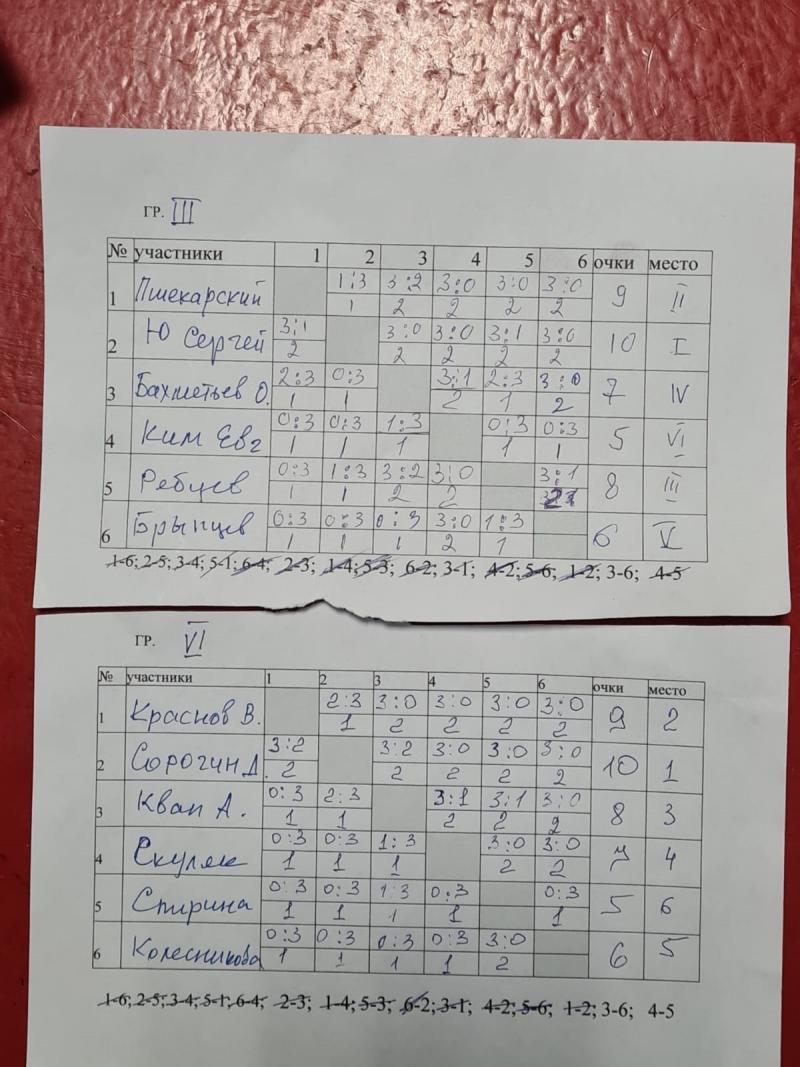 ГР. III
№ участники 1 2 3 4 5 6 очки место
1 Пшекарский 1:3 3:2 3:0 3:0 3:0 9 II
1 2 2 2 2
2 Ю Сергей 3:1 3:0 3:0 3:1 3:0 10 I
2 2 2 2 2
3 Бахметьев О. 2:3 0:3 3:1 2:3 3:0 7 IV
1 1 2 1 2
4 Ким Евг 0:3 0:3 1:3 0:3 0:3 5 VI
1 1 1 1 1
5 Ребцев 0:3 1:3 3:2 3:0 3:1 8 III
1 1 2 2 2
6 Брынцев 0:3 0:3 0:3 3:0 1:3 6 V
1 1 1 2 1
1-6; 2-5; 3-4; 5-1; 6-4; 2-3; 1-4; 5-3; 6-2; 3-1; 4-2; 5-6; 1-2; 3-6; 4-5
ГР. VI
№ участники 1 2 3 4 5 6 очки место
1 Краснов В. 2:3 3:0 3:0 3:0 3:0 9 2
1 2 2 2 2
2 Сорогин Д. 3:2 3:2 3:0 3:0 3:0 10 1
2 2 2 2 2
3 Кван А. 0:3 2:3 3:1 3:1 3:0 8 3
1 1 2 2 2
4 0:3 0:3 1:3 3:0 3:0 7 4
1 1 1 2 2
5 Спирина 0:3 0:3 1:3 0:3 0:3 5 6
1 1 1 1 1
6 Колесникова 0:3 0:3 0:3 0:3 3:0 6 5
1 1 1 1 2
1-6; 2-5; 3-4; 5-1; 6-4; 2-3; 1-4; 5-3; 6-2; 3-1; 4-2; 5-6; 1-2; 3-6; 4-5